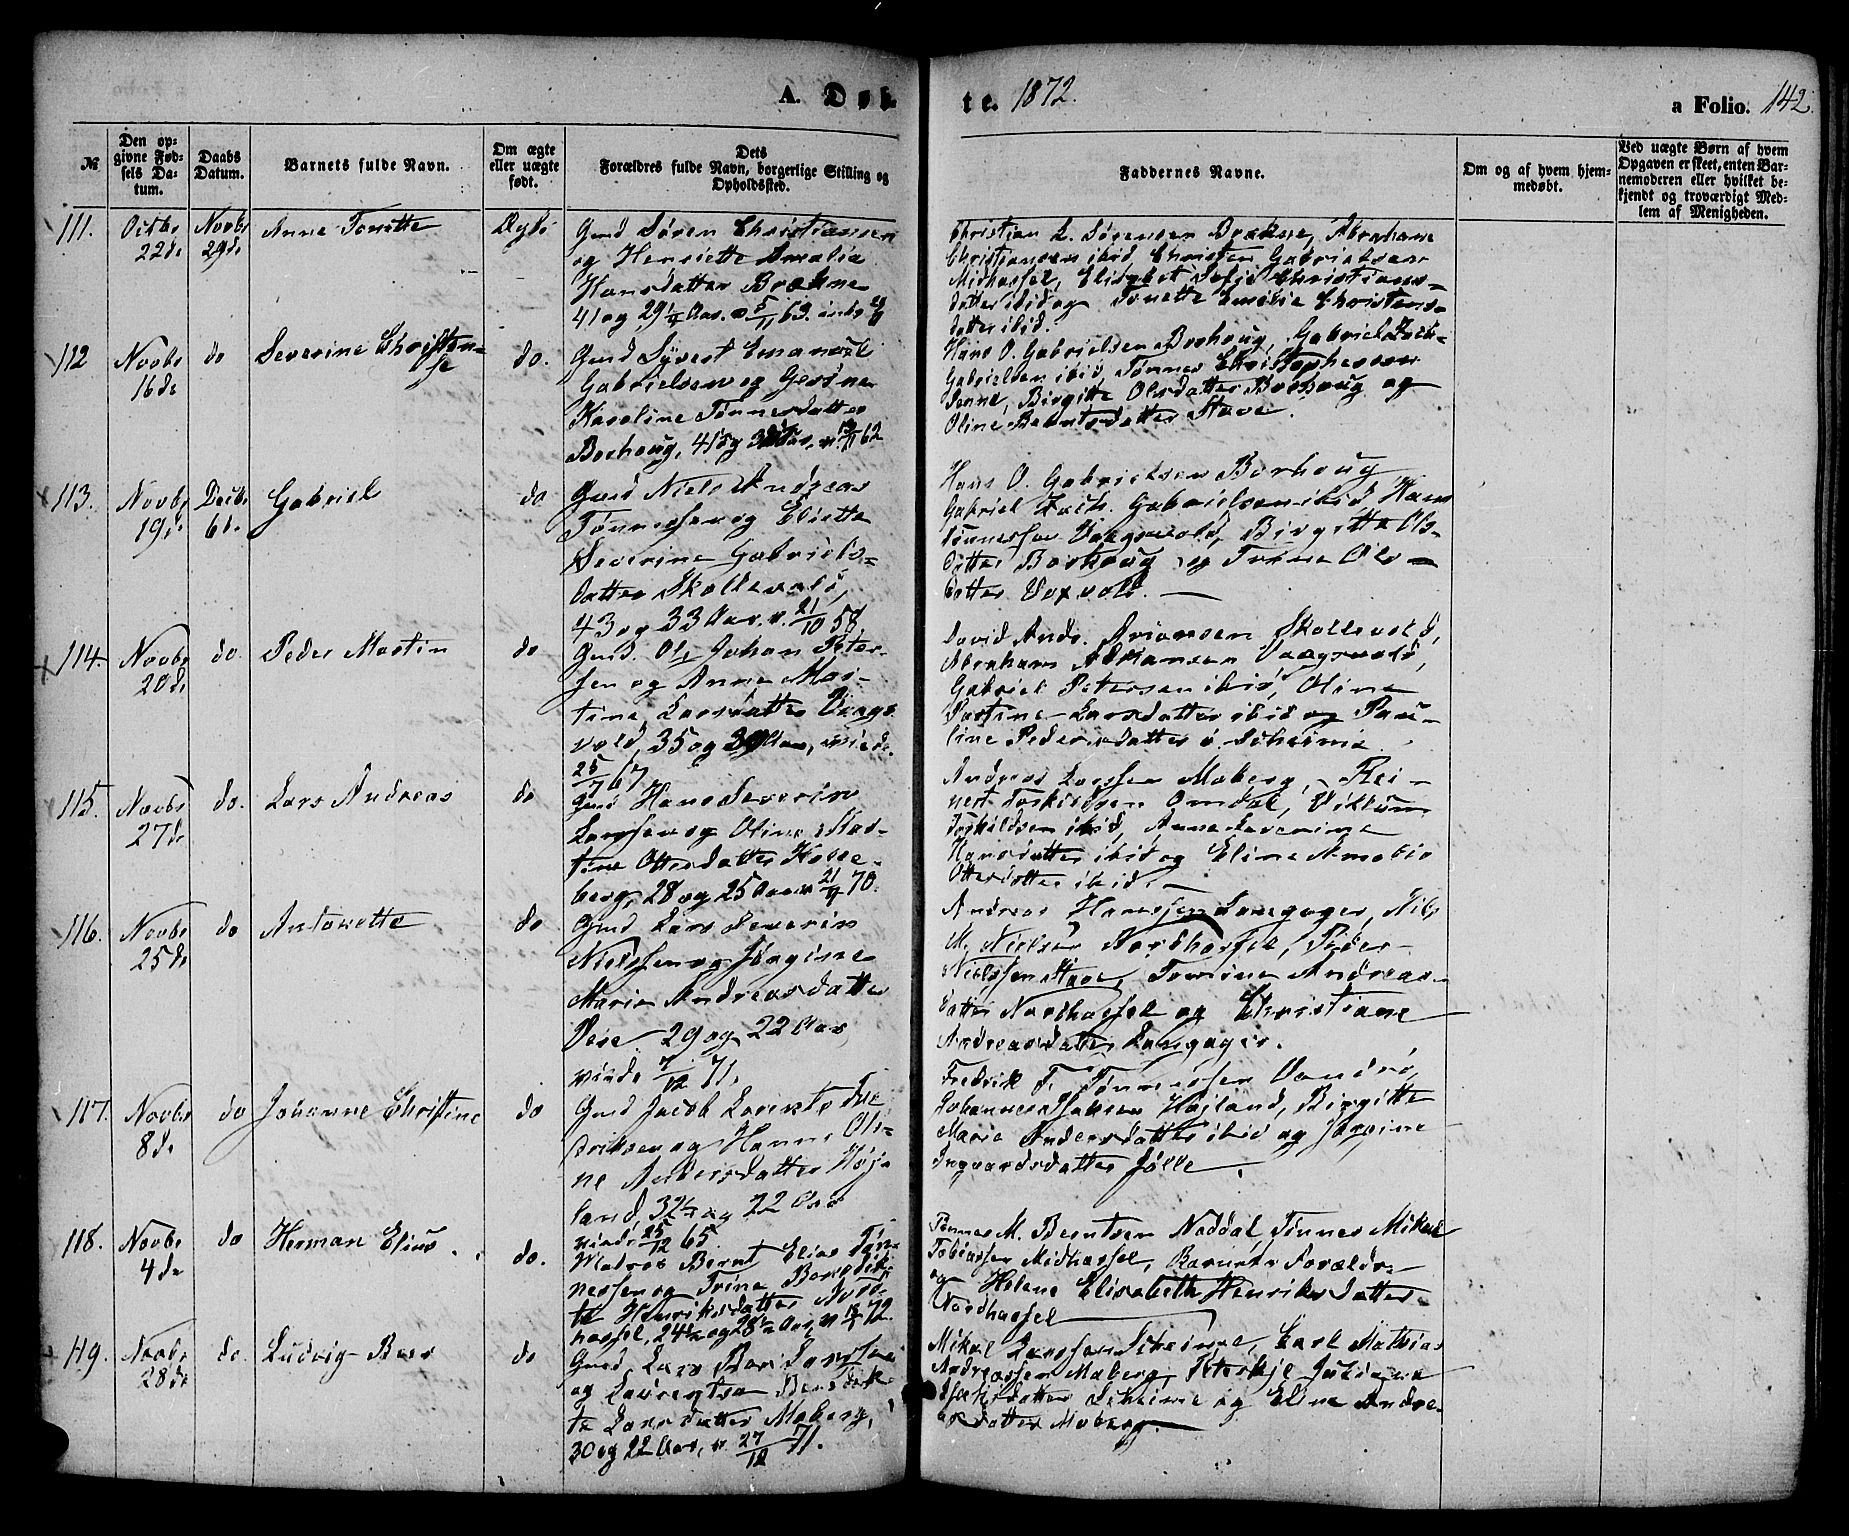 A. Døb-
te. 1872.
a Folio. 142.
№
Den op-
givne Fød-
sels Da-
tum.
Daabs
Datum.
Barnets fulde Navn.
Om ægte
eller uægte
født.
Dets
Forældres fulde Navn, borgerlige Stilling og
Opholdssted.
Faddernes Navne.
Om og af hvem hjem-
medøbt.
Ved uægte Børn af hvem
Opgaven er skeet, enten Bar-
nemoderen eller hvilket be-
kjendt og troværdigt Med-
lem af Menigheden.
111.
Octbr
22de
Novbr
29de
Anne Tonette
Ægte
Gmd Søren Christiansen
og Henriette Amalia
Hansdatter Brækne
41 og 29 1/4 Aar.
Christian L. Sørensen Brækne, Abraham
Christiansen ibid, Christen Gabrielsen
Midhassel, Elisabet Sofie Christians-
datter ibid og Tonette Emilie Christens-
datter ibid.
112
Novbr
16de
do
Severine Christen-
se
do.
Gmd Syvert Emanuel
Gabrielsen og Gesine
Karoline Tønnesdatter
Borhoug, 41 og Aar, v. 62
Hans O. Gabrielsen Borhoug, Gabriel Zach-
Gabrielsen ibid, Tønnes Christophersen
Birgitte Olsdatter Borhoug og
Oline Berntsdatter Stave.
113.
Novbr
19de
Decbr
6te
Gabriel
do
Gmd Niels Andreas
Tønnessen og Eliette
Severine Gabriels-
datter Skollevold,
43 og 33 Aar. v. 21/10 58.
Hans O. Gabrielsen Borhoug
Gabriel Zach. Gabrielsen ibid Hans
Tønnessen Vaagsvold, Birgitte Ols-
datter Borhoug og Trine Ols-
datter
114.
Novbr
20de
do.
Peder Martin
do
Gmd. Ole Johan Peter-
sen og Anne Mar-
tine Larsdatter Vaags-
vold, 35 og Aar, viede
25/7 67
David Andr. Arionsen Skollevold,
Abraham Vaagsvold,
Gabriel Petersen ibid, Oline
Larsdatter ibid og Pau-
line Pedersdatter
115.
Novbr
27de
do.
Lars Andreas
do
Gmd Hans Severin
Larssen og Oline Mar-
tine Ottersdatter
berg, 28 og 25 Aar v 70.
Andreas Larssen Moberg, Rei-
nert Torkildsen Omdal,
Torkildsen ibid, Anne Severine
Hansdatter ibid og Eline Amalie
Ottersdatter ibid.
116.
Novbr
25de
do
Antonette
do
Gmd Lars Severin
Nielssen og Jørgine
Marie Andreasdatter
Vere 29 og 22 Aar
viede 7/12 71.
Andreas Hanssen Langager, Nils
M. Nielsen Nordhassel, Peder
Nielssen Stave, Tomine Andreas-
datter Nordhassel og Christiane
Andreasdatter Langager.
117.
Novbr
8de
do
Johanne Christine
do
Gmd Jacob Lorents Fre-
driksen og Hanne Oli-
ne Andersdatter Høje-
land, 32 1/2 og 22 Aar
viede 25/12 65.
Fredrik T. Tønnessen
Johannes Højland, Birgitte
Marie Andersdatter ibid og Jørgine
Ingvardsdatter Jølle.
118.
Novbr
4de
do
Herman Elius
do.
Matros Bernt Elias Tøn-
nessen og Trine Benedik-
te Henriksdatter Nord-
hassel, 24 1/2 og 28 1/2 Aar, v 72.
Tønnes M. Berntsen Noddal, Tønnes Mikal
Tobiassen Midhassel, Barnets Forældre
og Helene Elisabeth Henriksdatter
Nordhassel
119.
Novbr
28de
do.
Ludvig Beer
do
Gmd. Lars Larssen
og Laurentse Benedik-
te Larsdatter Moberg,
30 og 22 Aar, v. 27/12 71.
Mikal Larssen Carl Mathias
Andreassen Moberg, Juliane
og Eline Andre-
asdatter Moberg.